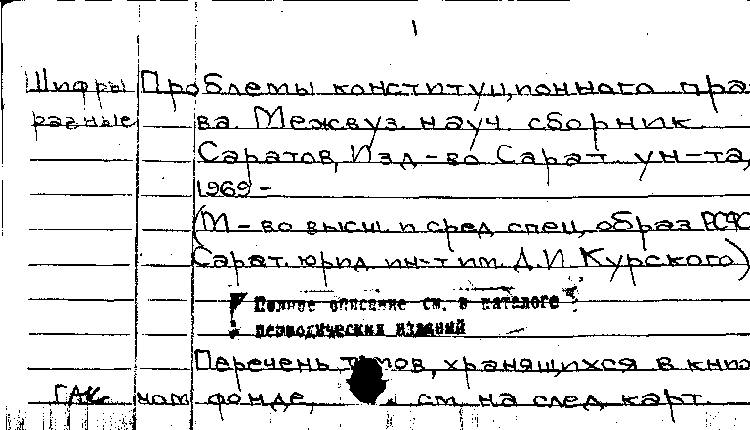 1
Шифры Проблемы конституционного пра
разные ва. Межвуз. науч. сборник.
Саратов, Изд-во Сарат. ун-та,
1969 -
(М-во высш. и сред. спец. образ. РСФС
Сарат. юрид. ин-т им. Д.И. Курского)
Полное описание см. в каталоге
периодических изданий
Перечень томов, хранящихся в книж
ГАК ном фонде, см. на след. карт.